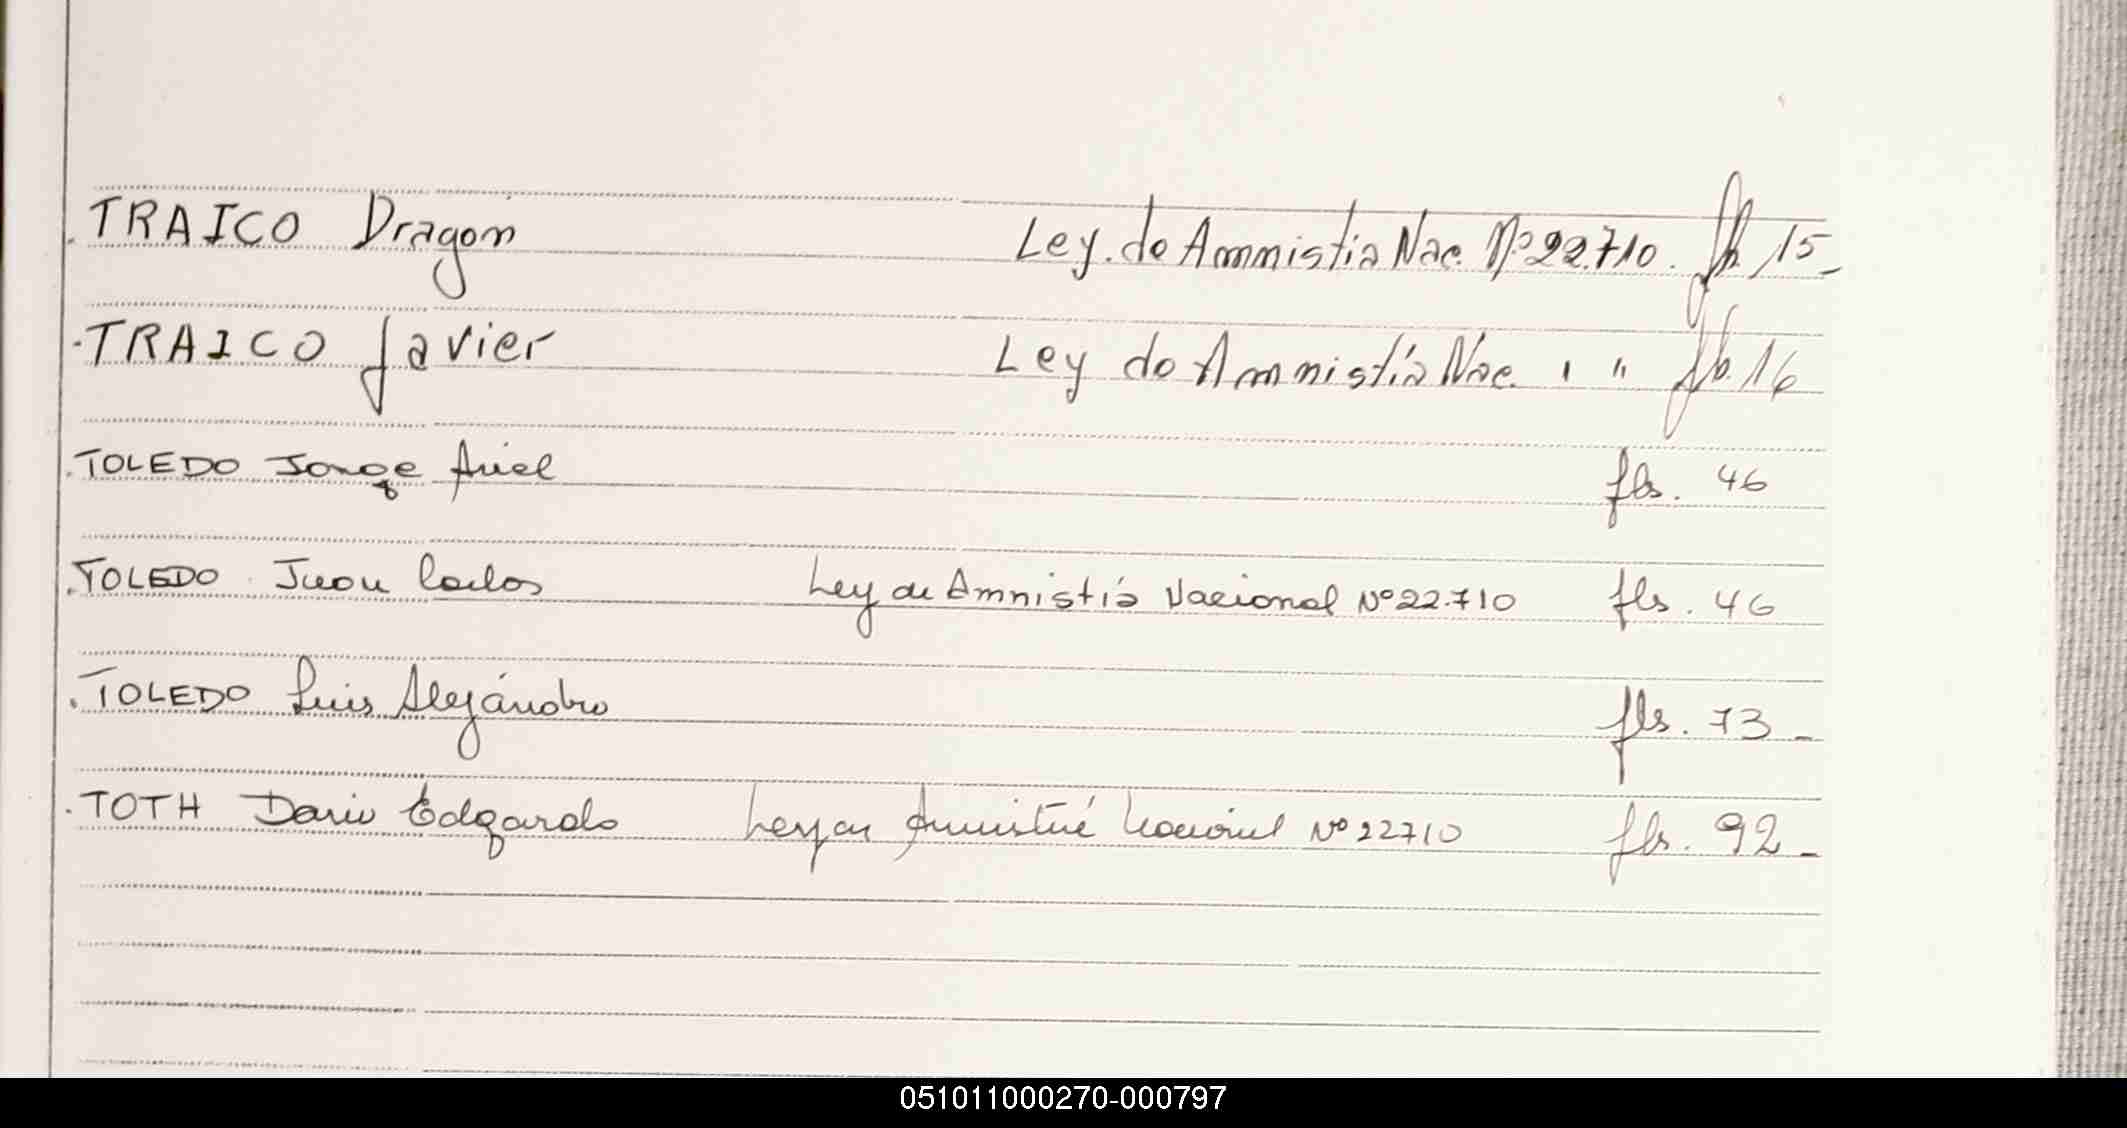 .TRAICO Dragon Ley. de Ammistia Nac. Nº 22.710. fs 15-
.TRAICO Javier Ley de Ammistia Nac. " " fs. 16
.TOLEDO Jorge Ariel fls. 46
.TOLEDO Juan Carlos Ley de Amnistía Nacional Nº 22.710 fls. 46
.TOLEDO Luis Alejandro fls. 73-
.TOTH Dario Edgardo Ley de Amnistía Nacional Nº 22710 fls. 92-
051011000270-000797